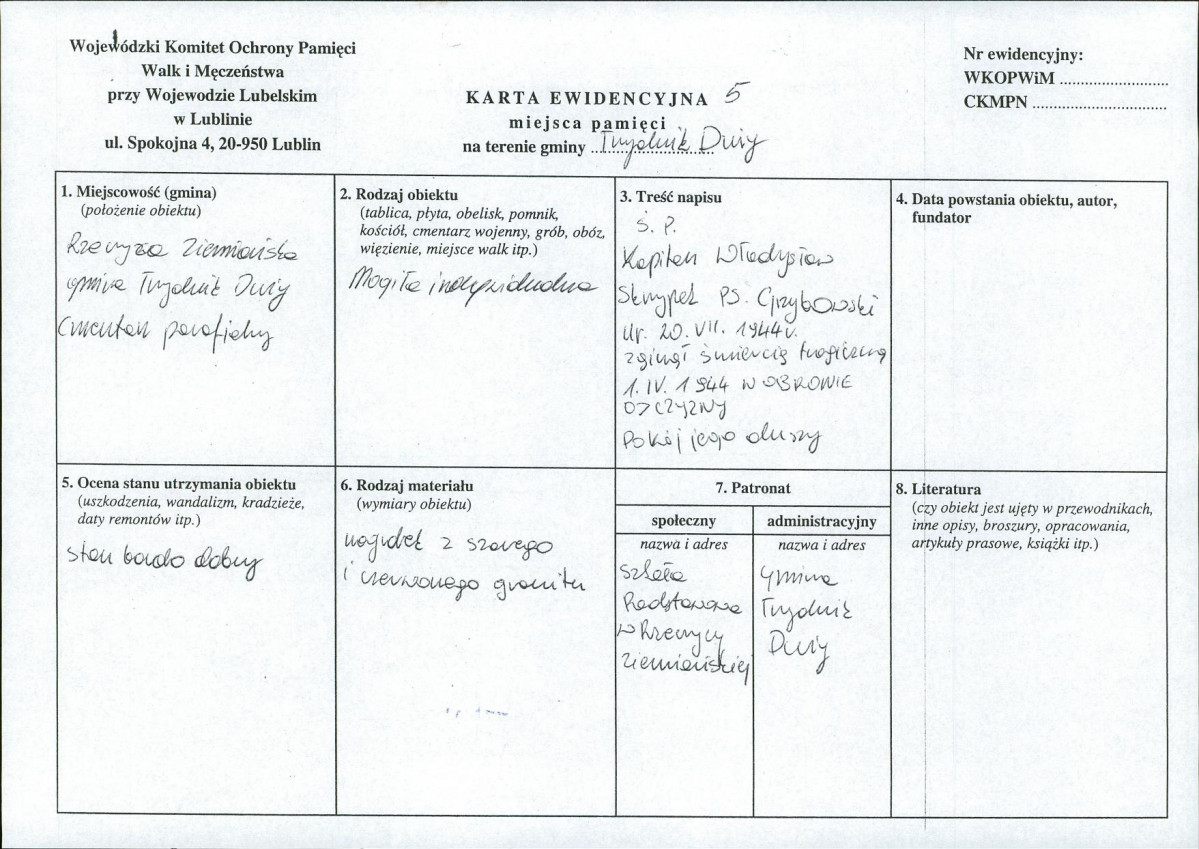 Wojewódzki Komitet Ochrony Pamięci
Walk i Męczeństwa
przy Wojewodzie Lubelskim
w Lublinie
ul. Spokojna 4, 20-950 Lublin
KARTA EWIDENCYJNA 5
miejsca pamięci
na terenie gminy Trzydnik Duży
Nr ewidencyjny:
WKOPWiM
CKMPN
1. Miejscowość (gmina)
(położenie obiektu)
Rzeczyca Ziemiańska
gmina Trzydnik Duży
Cmentarz parafialny
2. Rodzaj obiektu
(tablica, płyta, obelisk, pomnik,
kościół, cmentarz wojenny, grób, obóz,
więzienie, miejsce walk itp.)
Mogiła indywidualna
3. Treść napisu
Ś. P.
Kapitan Władysław
Skrzypek PS. Grzybowski
Ur. 20. VII. 1944r.
zginął śmiercią tragiczną
1. IV. 1944 W OBRONIE
OJCZYZNY
Pokój jego duszy
4. Data powstania obiektu, autor,
fundator
5. Ocena stanu utrzymania obiektu
(uszkodzenia, wandalizm, kradzieże,
daty remontów itp.)
stan bardo dobry
6. Rodzaj materiału
(wymiary obiektu)
nagrobek z szarego
i czerwonego granitu
7. Patronat
społeczny
nazwa i adres
Szkoła
Podstawowa
w Rzeczycy
Ziemiańskiej
administracyjny
nazwa i adres
Gmina
Trzydnik
Duży
8. Literatura
(czy obiekt jest ujęty w przewodnikach,
inne opisy, broszury, opracowania,
artykuły prasowe, książki itp.)